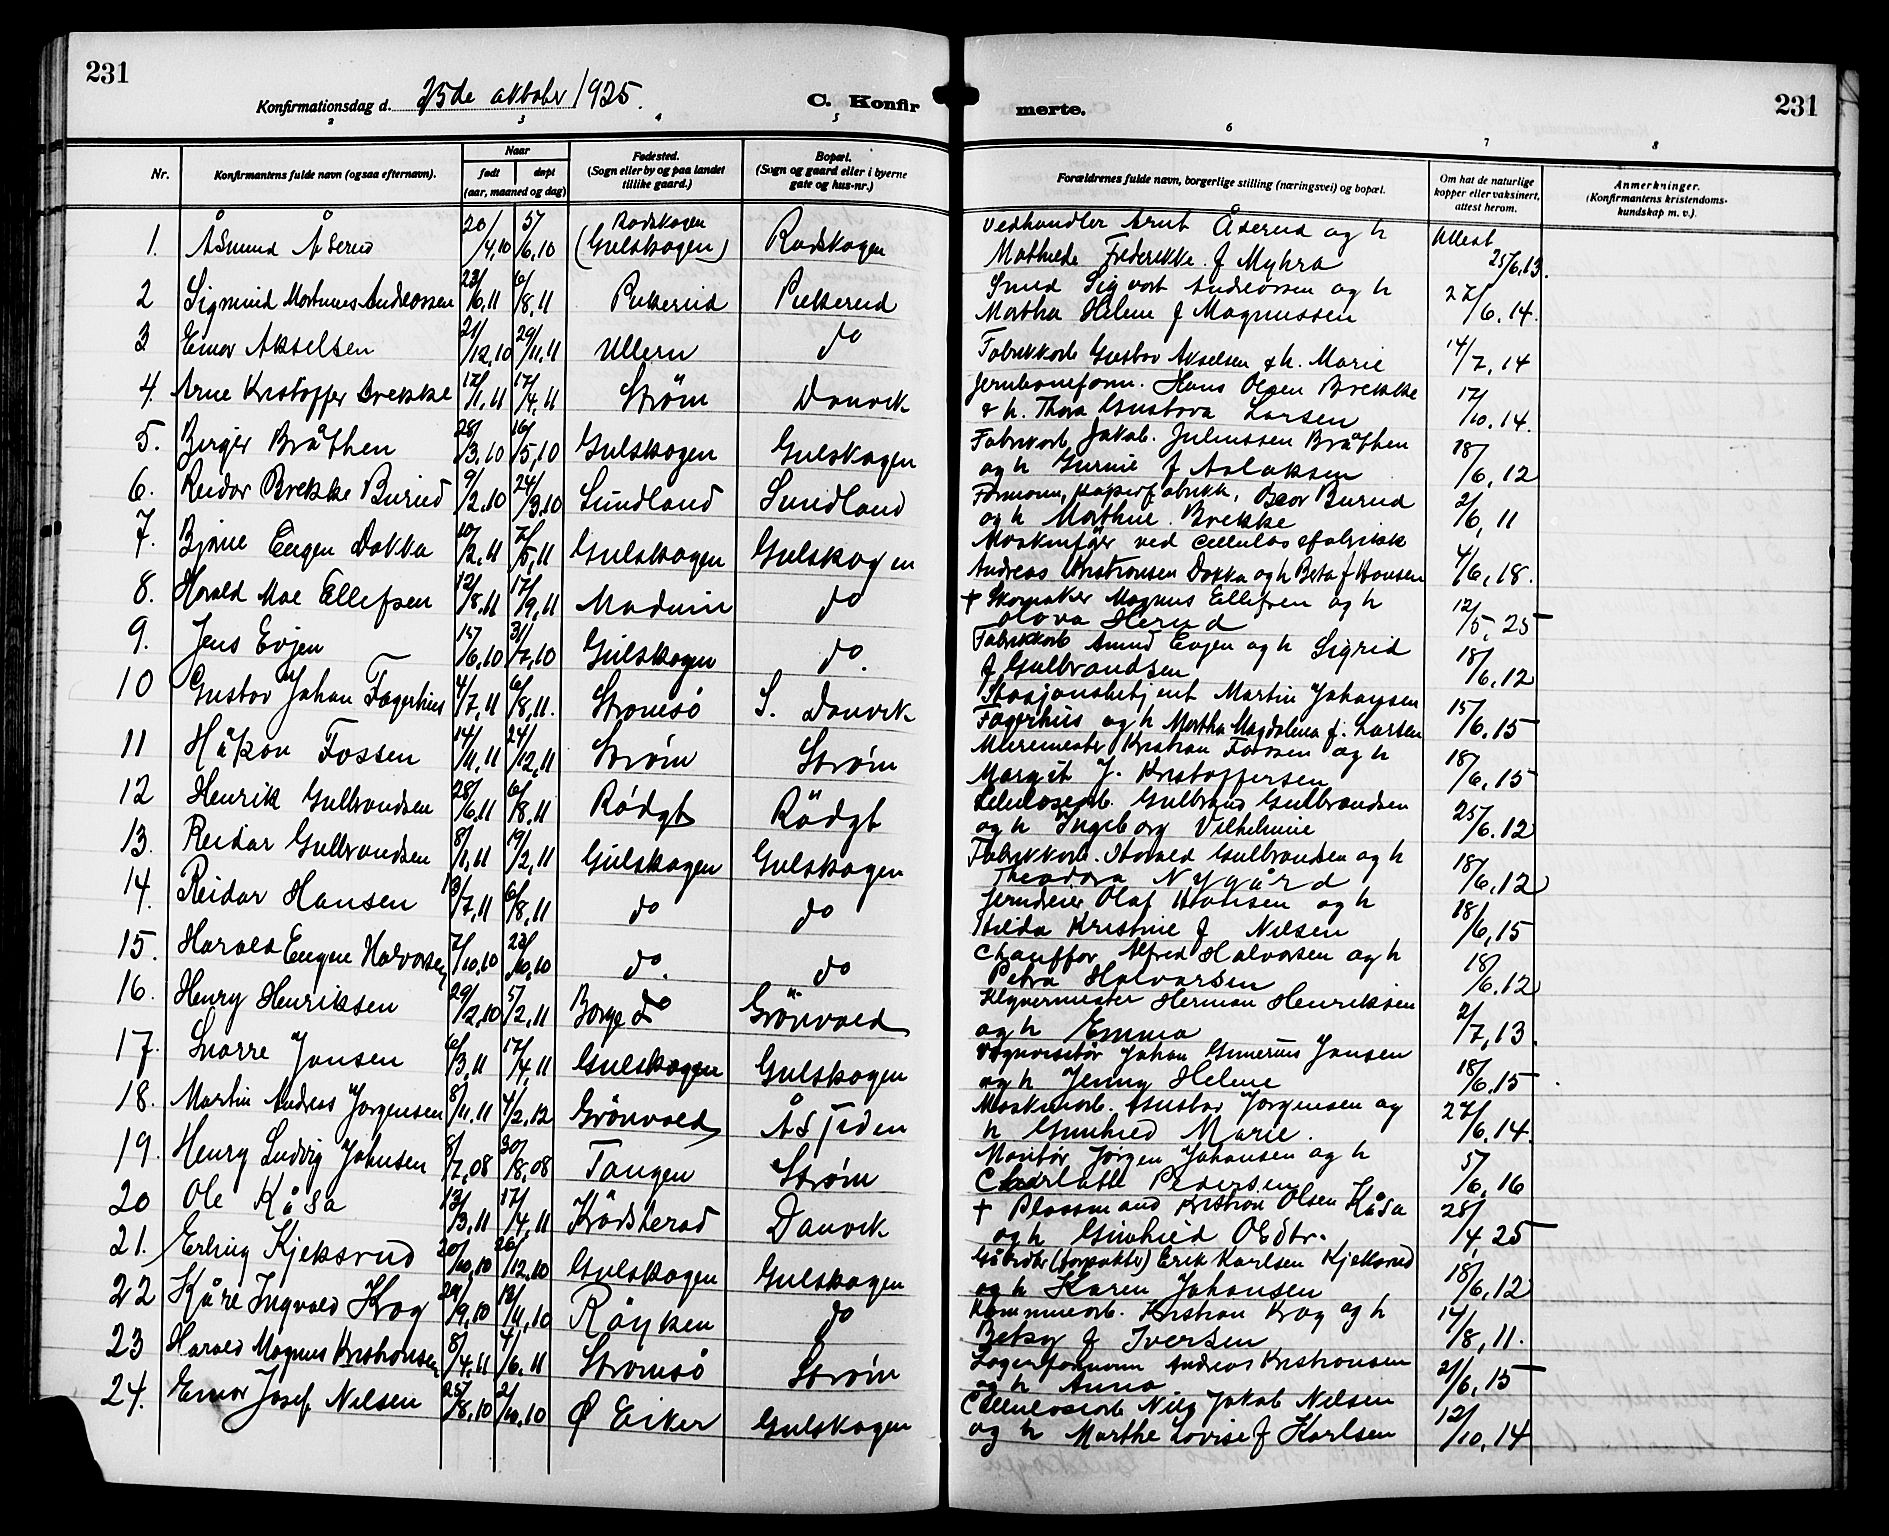 231
Konfirmationsdag d. 25de oktober 1925.
C. Konfir
merte.
231
2 3 4 5 6 7 8
Nr.
Konfirmantens fulde navn (ogsaa efternavn).
Naar
født
døpt
(aar, maaned og dag)
Fødested.
(Sogn eller by og paa landet
tillike gaard.)
Bopæl.
(Sogn og gaard eller i byerne
gate og hus-nr.)
Forældrenes fulde navn, borgerlige stilling (næringsvei) og bopæl.
Om hat de naturlige
kopper eller vaksinert,
attest herom.
Anmerkninger.
(Konfirmantens kristendoms-
kundskap m. v.)
1. Åsmund Åserud 20/4,10 5/6,10 Rødskogen (Gulskogen) Rødskogen Vedhandler Arnt Åserud og h Attest
Mathilde Frederikke f Myhra 25/6,13.
2 Sigmund Martinus Andreassen 23/6,11 6/8,11 Pukerud Pukerud Smed Sigvart Andreassen og h
Martha Helene f Magnussen 27/6,14.
3 Einar Akselsen 21/12,10 29/11,11 Ullern do Fabrikkarb Gustav Akselsen & h. Marie 14/7,14
4. Arne Kristoffer Brekke 12/1,11 17/4,11 Strøm Danvik Jernbaneform. Hans Olsen Brekke
& h. Thora Gustava Larsen 17/10,14.
5. Birger Bråthen 28/3,10 16/5,10 Gulskogen Gulskogen Fabrikarb Jakob Juliussen Bråthen
og h Gurine f Aslaksen 18/6,12
6. Reidar Brekke Burud 9/2,10 24/3,10 Sundland Sundland Formann, papirfabrikk, Burud
og h Marthine Brekke 2/6,11
7. Bjarne Eugen Dokka 10/2,11 7/5,11 Gulskogen Gulskogen Maskinfør ved cellulosefabrikk
Andreas Kristiansen Dokka og h Berta f Hansen 4/6,18.
8. Harald Moe Ellefsen 12/8,11 17/9,11 Modum do † Skomaker Magnus Ellefsen og h
Olava Herud 12/5,25
9. Jens Evjen 15/6,10 31/7,10 Gulskogen do. Fabrikkarb Amund Evjen og h Sigrid
f Gulbrandsen 18/6,12
10 Gustav Johan Fagerhus 4/7,11 6/8,11. Strømsö S. Danvik Stasjonsbetjent Martin Johansen
Fagerhus og h Martha Magdalena f. Larsen 15/6,15
11 Håkon Fossen 14/11,11 24/12,11 Strøm Strøm Murermester Kristian Fossen og h
Margit J. Kristoffersen 18/6,15
12 Henrik Gulbrandsen 28/6,11 6/8,11 Rødgt Rödgt Celulosearb. Gulbrand Gulbrandsen
og h Ingeborg Vilhelmine 25/6.12
13. Reidar Gulbrandsen 8/1,11 19/2,11 Gulskogen Gulskogen Fabrikkarb. Gulbrandsen og h
Theodora Nygård 18/6,12
14. Reidar Hansen 13/7,11 6/8,11 do do Jerndreier Olaf Hansen og h
Hilda Kristine f Nilsen 18/6,15
15. Harald Eugen Halvorsen 7/10,10 23/10,10 do. do Chauffør Alfred Halvorsen og h
Petra Halvorsen 18/6.12
16. Henry Henriksen 29/12,10 5/2,11 Borge do Grönvold Klyvermester Herman Henriksen
og h Emma 2/7,13.
17. Snorre Jansen 6/3,11 17/4,11 Gulskogen Gulskogen Vognvisitör Johan Gunerius Jansen
og h Jenny Helene 18/6.15
18. Martin Andreas Jørgensen 8/11,11 4/2,12 Grönvold Åssiden Maskinarb. Gustav Jørgensen og
h Gunhild Marie. 27/6,14.
19. Henry Ludvig Johnsen 8/7,08 30/8,08 Tangen Strøm Montör Jørgen Johansen og h
Charlotte Pedersen 5/6,16
20 Ole Kåsa 13/3,11 17/4,11 Danvik † Plassmand Kristian Olsen Kåsa
og h Gunhild Oldtr. 28/4,25
21. Erling Kjeksrud 20/10,10 26/12,10 Gulskogen Gulskogen Gårdbr (forpakter) Erik Karlsen Kjeksrud
og h Karen Johansen 18/6,12
22 Kåre Ingvald Krog 29/9,10 13/11,10 Röyken do Kommunearb. Kristian Krog og h
Betsy f Iversen 14/8,11.
23 Harald Magnus Kristiansen 8/4,11 4/6,11 Strømsö Strøm Lagerformann Andreas Kristiansen
og h Anna 21/6,15
24. Einar Josef Nilsen 25/8,10 2/10,10 Ø Eiker Gulskogen Cellulosearb Nils Jakob Nilsen
og h Marthe Lovise f Karlsen 12/10,14